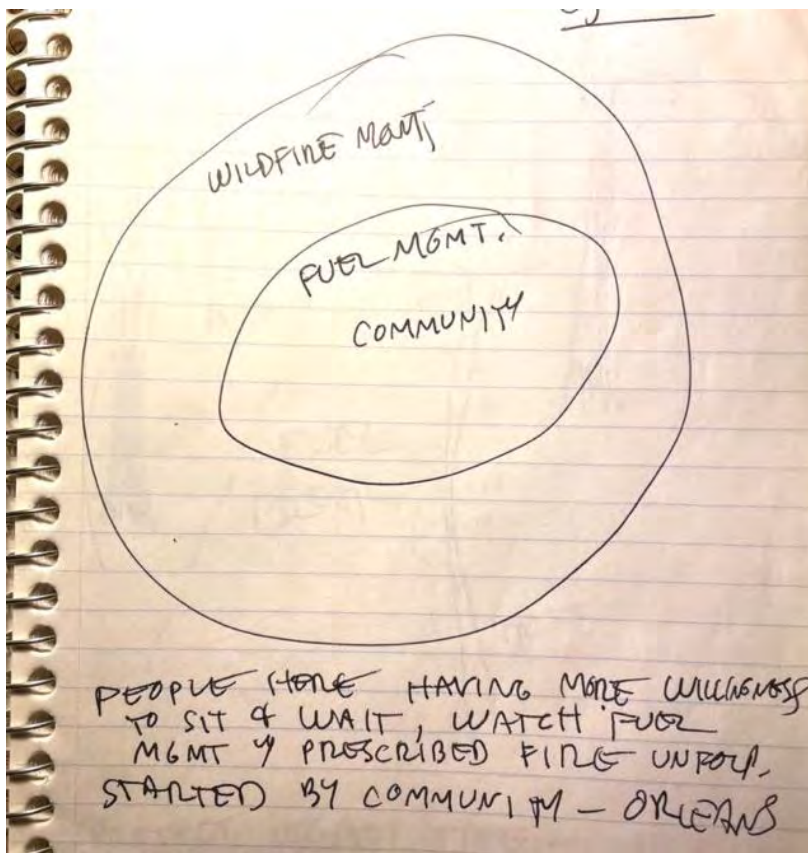 WILDFIRE MGMT,
FUEL MGMT.
COMMUNITY
PEOPLE HERE HAVING MORE WILLINGNESS
TO SIT & WAIT, WATCH FUEL
MGMT & PRESCRIBED FIRE UNFOLD.
STARTED BY COMMUNITY – ORLEANS